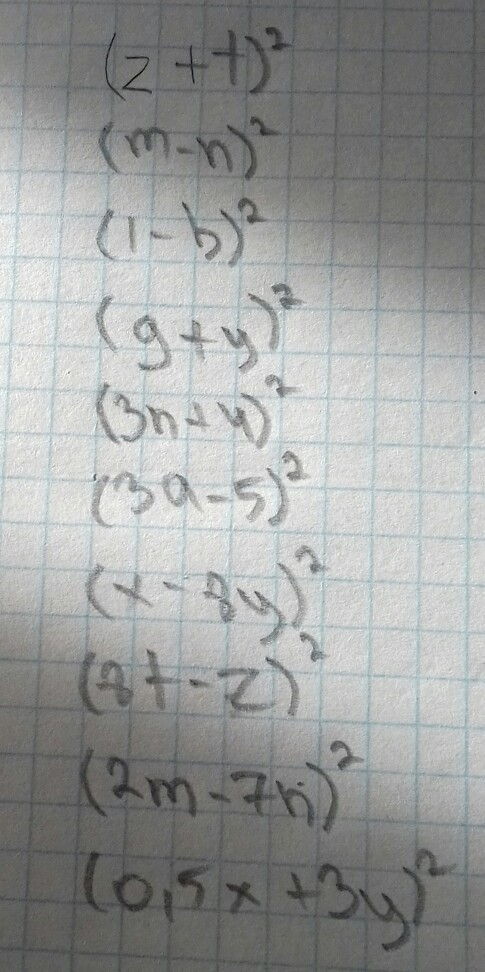 (z + t)²
(m - n)²
(1 - b)²
(9 + y)²
(3n + 4)²
(3a - 5)²
(x - 8y)²
(8t - z)²
(2m - 7n)²
(0,5x + 3y)²